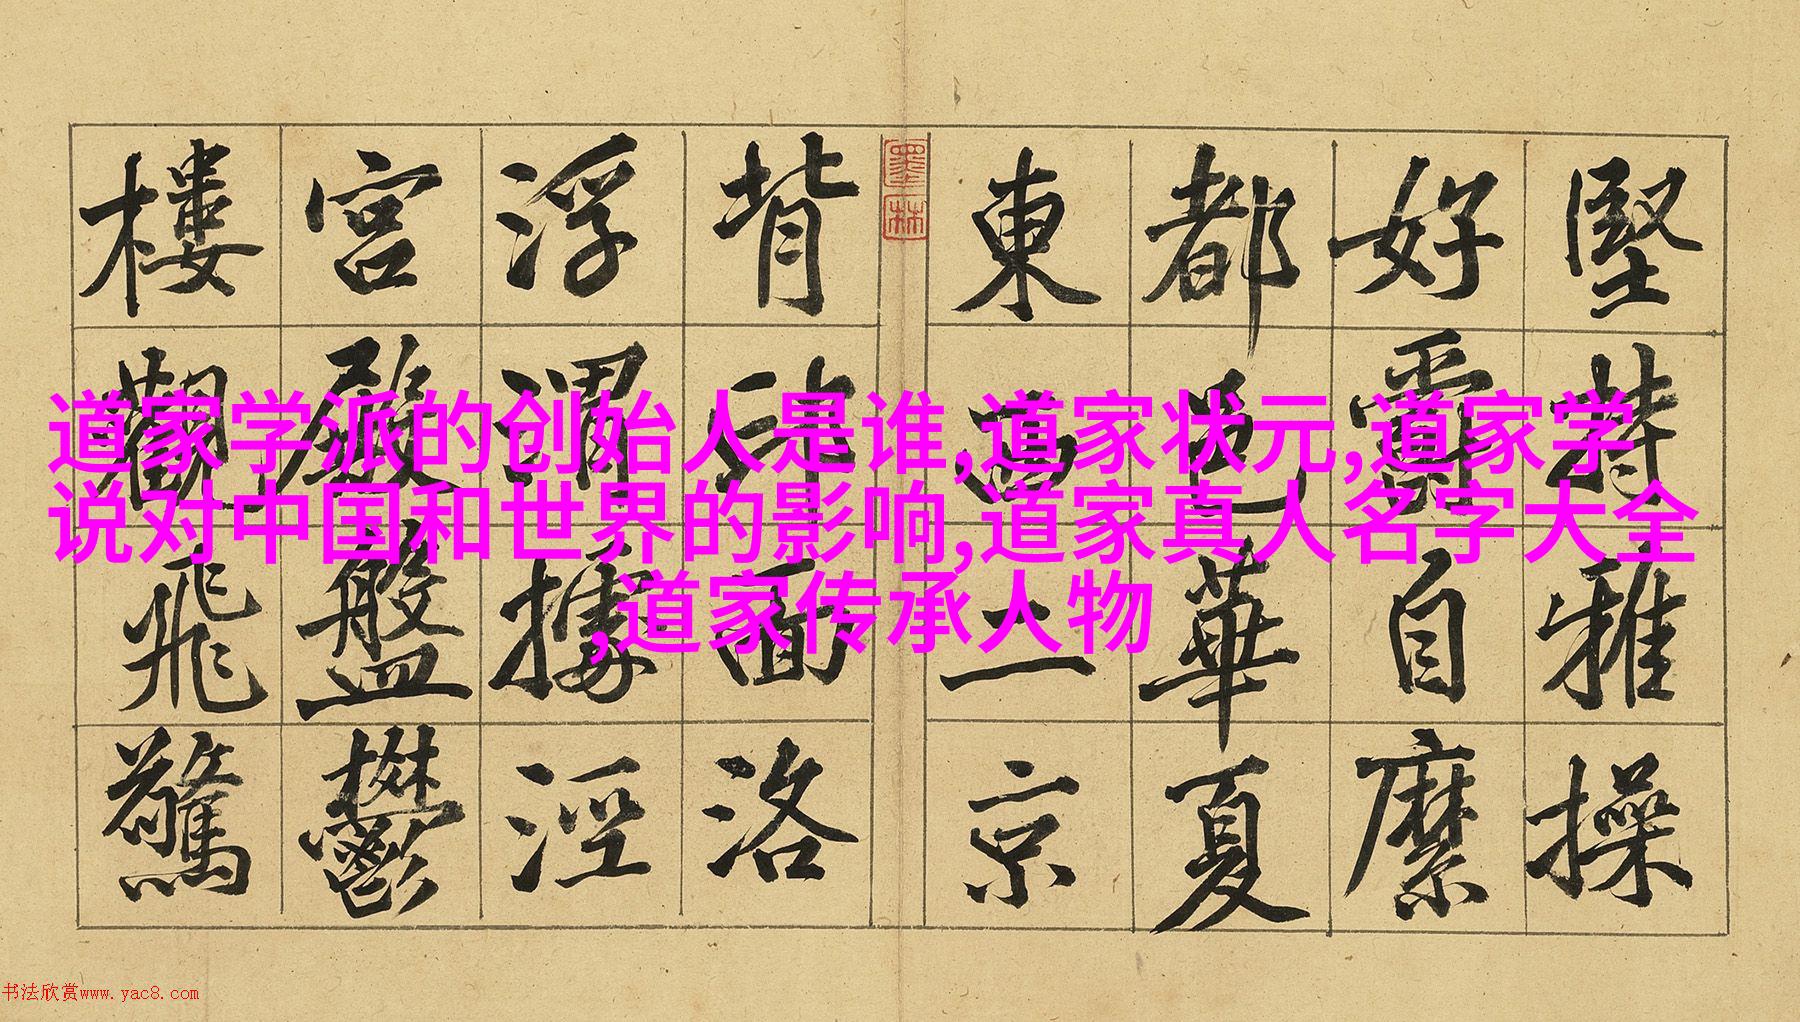 道家学派的创始人是谁,道家状元,道家学
说对中国和世界的影响,道家真人名字大全
,道家传承人物
堅持雅操
好爵自縻
都邑華夏
東西二京
墨林
背邙面洛
浮渭據涇
宮殿盤鬱
樓觀飛驚
书法欣赏www.yac8.com